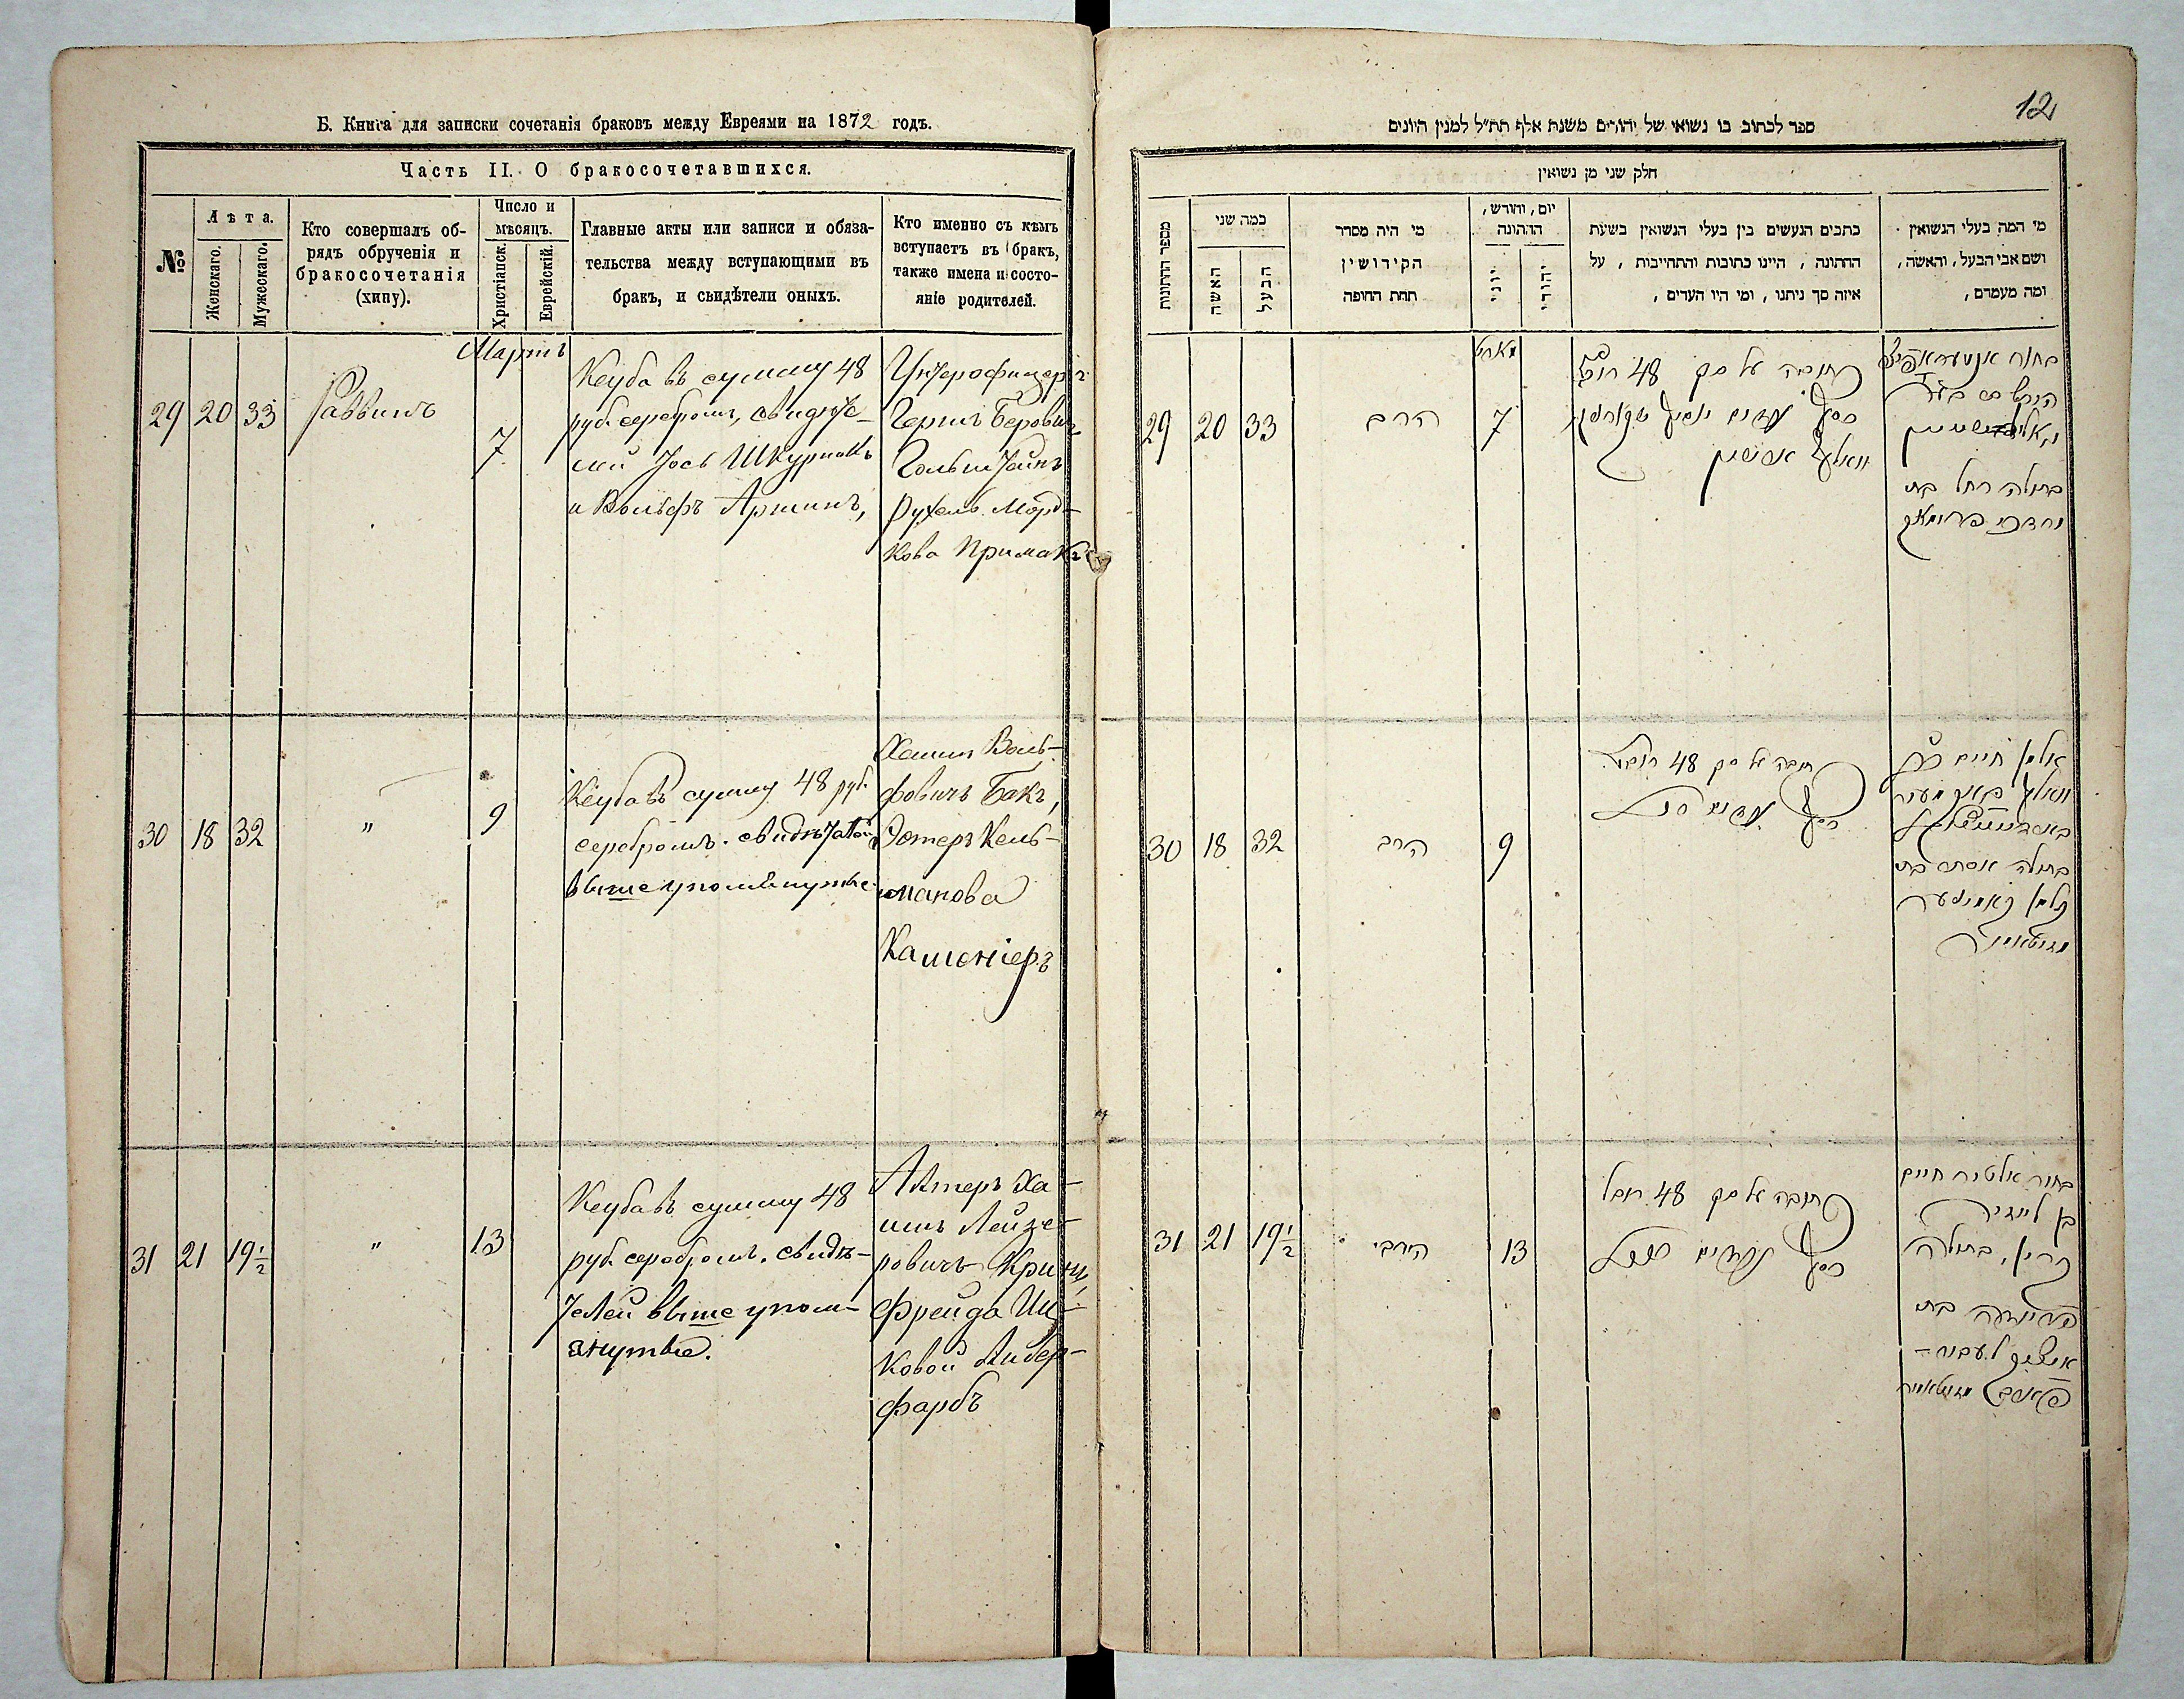 Б. Книга для записки сочетанія браковъ между Евреями на 1872 годъ.
Часть II. О бракосочетавшихся.
№
Лѣта.
Женскаго.
Мужескаго.
Кто совершалъ об-
рядъ обрученія и
бракосочетанія
(хипу).
Число и
мѣсяцъ.
Христіанск.
Еврейскій.
Главные акты или записи и обяза-
тельства между вступающими въ
бракъ, и свидѣтели оныхъ.
Кто именно съ кѣмъ
вступаетъ въ бракъ,
также имена и состо-
яніе родителей.
Мартъ
29 20 33
Раввинъ
7
Кеуба въ сумму 48
руб. серебромъ, свидѣте-
лей Іось Шкурникъ
и Вольфъ Аршинъ,
Унтерофицеръ
Гершъ Беровичъ
Гольштейнъ
Рухель Морд-
кова Примакъ
30 18 32
"
9
Кеуба въ сумму 48 руб.
серебромъ. свидѣтели
выше упомянутые
Хаимъ Воль-
фовичъ Бакъ,
Эстеръ Кель-
манова
Каменіеръ
31 21 19 1/2
"
13
Кеуба въ сумму 48
руб. серебромъ. свидѣ-
телей выше упом-
янутые.
Алтеръ Ха-
имъ Лейзе-
ровичъ Кринъ,
Фрейда Иц-
ковой Либер-
фарбъ
12
ספר לכתוב בו נשואי של יהודים משנת אלף תת״ל למנין היונים
חלק שני מן נשואין
מספר החתונות
כמה שני
האשה
הבעל
מי היה מסדר
הקידושין
תחת החופה
יום, וחורש,
החתונה
יוני
יהודי
כתבים הנעשים בין בעלי הנשואין בשעת
החתונה, היינו כתובות והתחייבות, על
איזה סך ניתנו, ומי היו העדים,
מי המה בעלי הנשואין
ושם אבי הבעל, והאשה,
ומה מעמדם,
מארט
29 20 33
הרב
7
כתובה על סך 48 רובל
כסף
בחור
בתולה רחל בת
מרדכי פרימאק
30 18 32
הרב
9
כתובה על סך 48 רובל
כסף
אלמן חיים בן
וואלף באק
בתולה אסתר בת
קלמן קאמיניער
31 21 19 1/2
הרב
13
כתובה על סך 48 רובל
כסף
בחור אלטיר חיים
בן לייזיר
קרין, בתולה
פריידע בת
איציק ליבער-
פארב